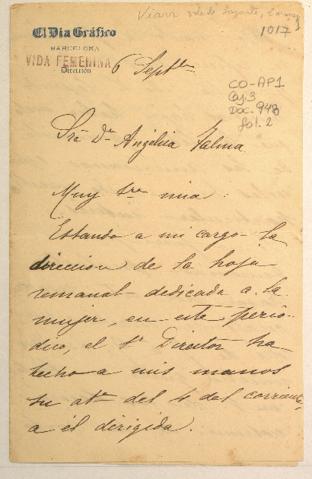 1017
El Dia Gráfico
BARCELONA
VIDA FEMENINA
Dirección
CO-AP1
Caj. 3
Doc. 948
fol. 2
6 Septbre
Sra Da Angélica Palma
Muy Sra mia:
Estando a mi cargo la
direccion de la hoja
semanal dedicada a la
mujer, en este perió-
dico, el Sr Director ha
hecho a mis manos
su ata del 4 del corriente,
a él dirigida.